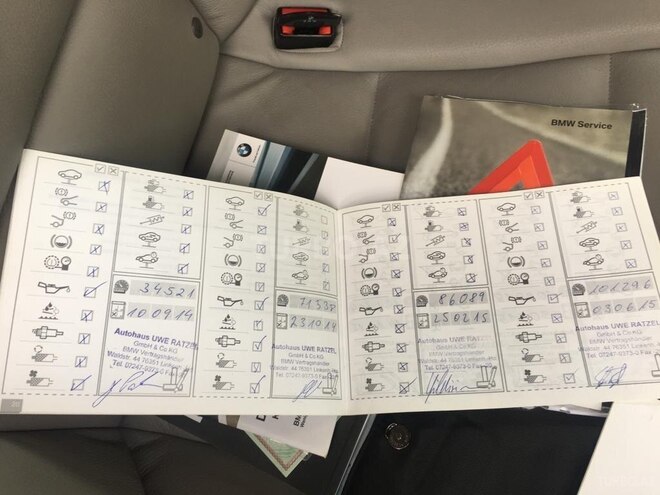 BMW Service
34521
10.09.14
Autohaus UWE RATZEL
GmbH & Co KG
BMW Vertragshändler
Waldstr. 44 76351 Linkenh.-Ho
Tel. 07247-9373-0 Fax
23.10.14
Autohaus UWE RATZEL
GmbH & Co KG
BMW Vertragshändler
Waldstr. 44 76351 Linkenh.-Ho
Tel. 07247-9373-0 Fax
86089
25.02.15
Autohaus UWE
GmbH & Co KG
BMW Vertragshändler
Waldstr. 44 76351 Linkenh.-Ho
Tel. 07247-9373-0 Fax
101296
03.06.15
Autohaus UWE RATZEL
GmbH & Co KG
BMW Vertragshändler
Waldstr. 44 76351 Linkenh.-Ho
Tel. 07247-9373-0 Fax
BMW